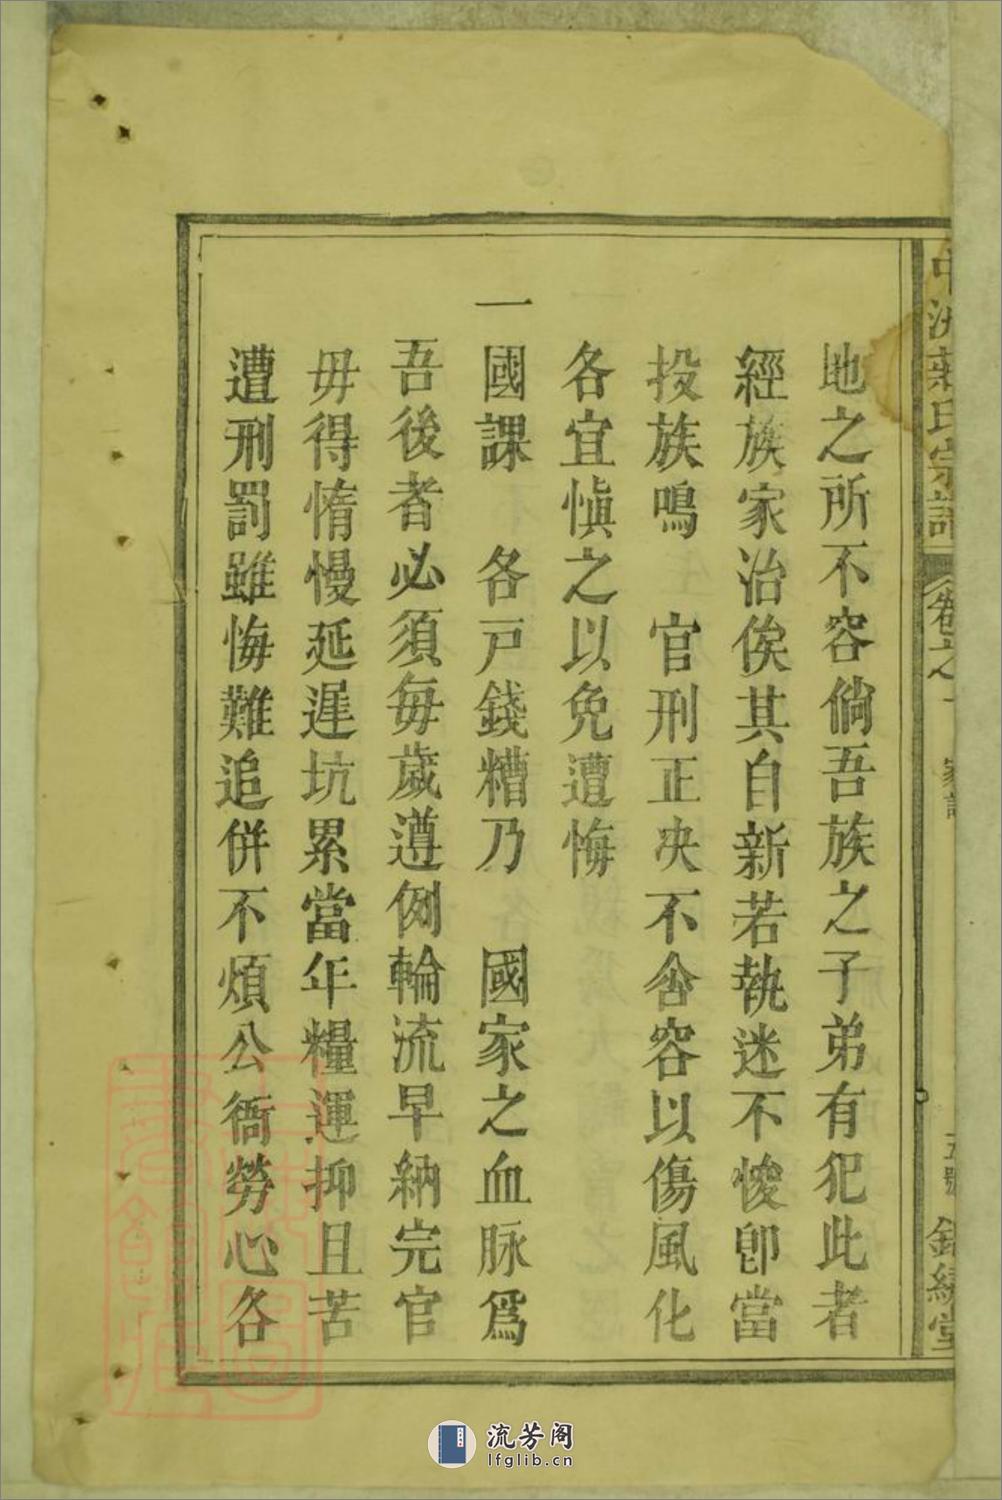 地之所不容倘吾族之子弟有犯此者
經族家治俟其自新若執迷不悛卽當
投族鳴　官刑正决不舍容以傷風化
各宜愼之以免遭悔
一國課　各戸錢糟乃　國家之血脉爲
吾後者必須每歲遵例輪流早納完官
毋得惰慢延遲坑累當年糧運抑且苦
遭刑罰雖悔難追併不煩公衙勞心各
氏宗譜
卷之
流芳阁
lfglib.cn